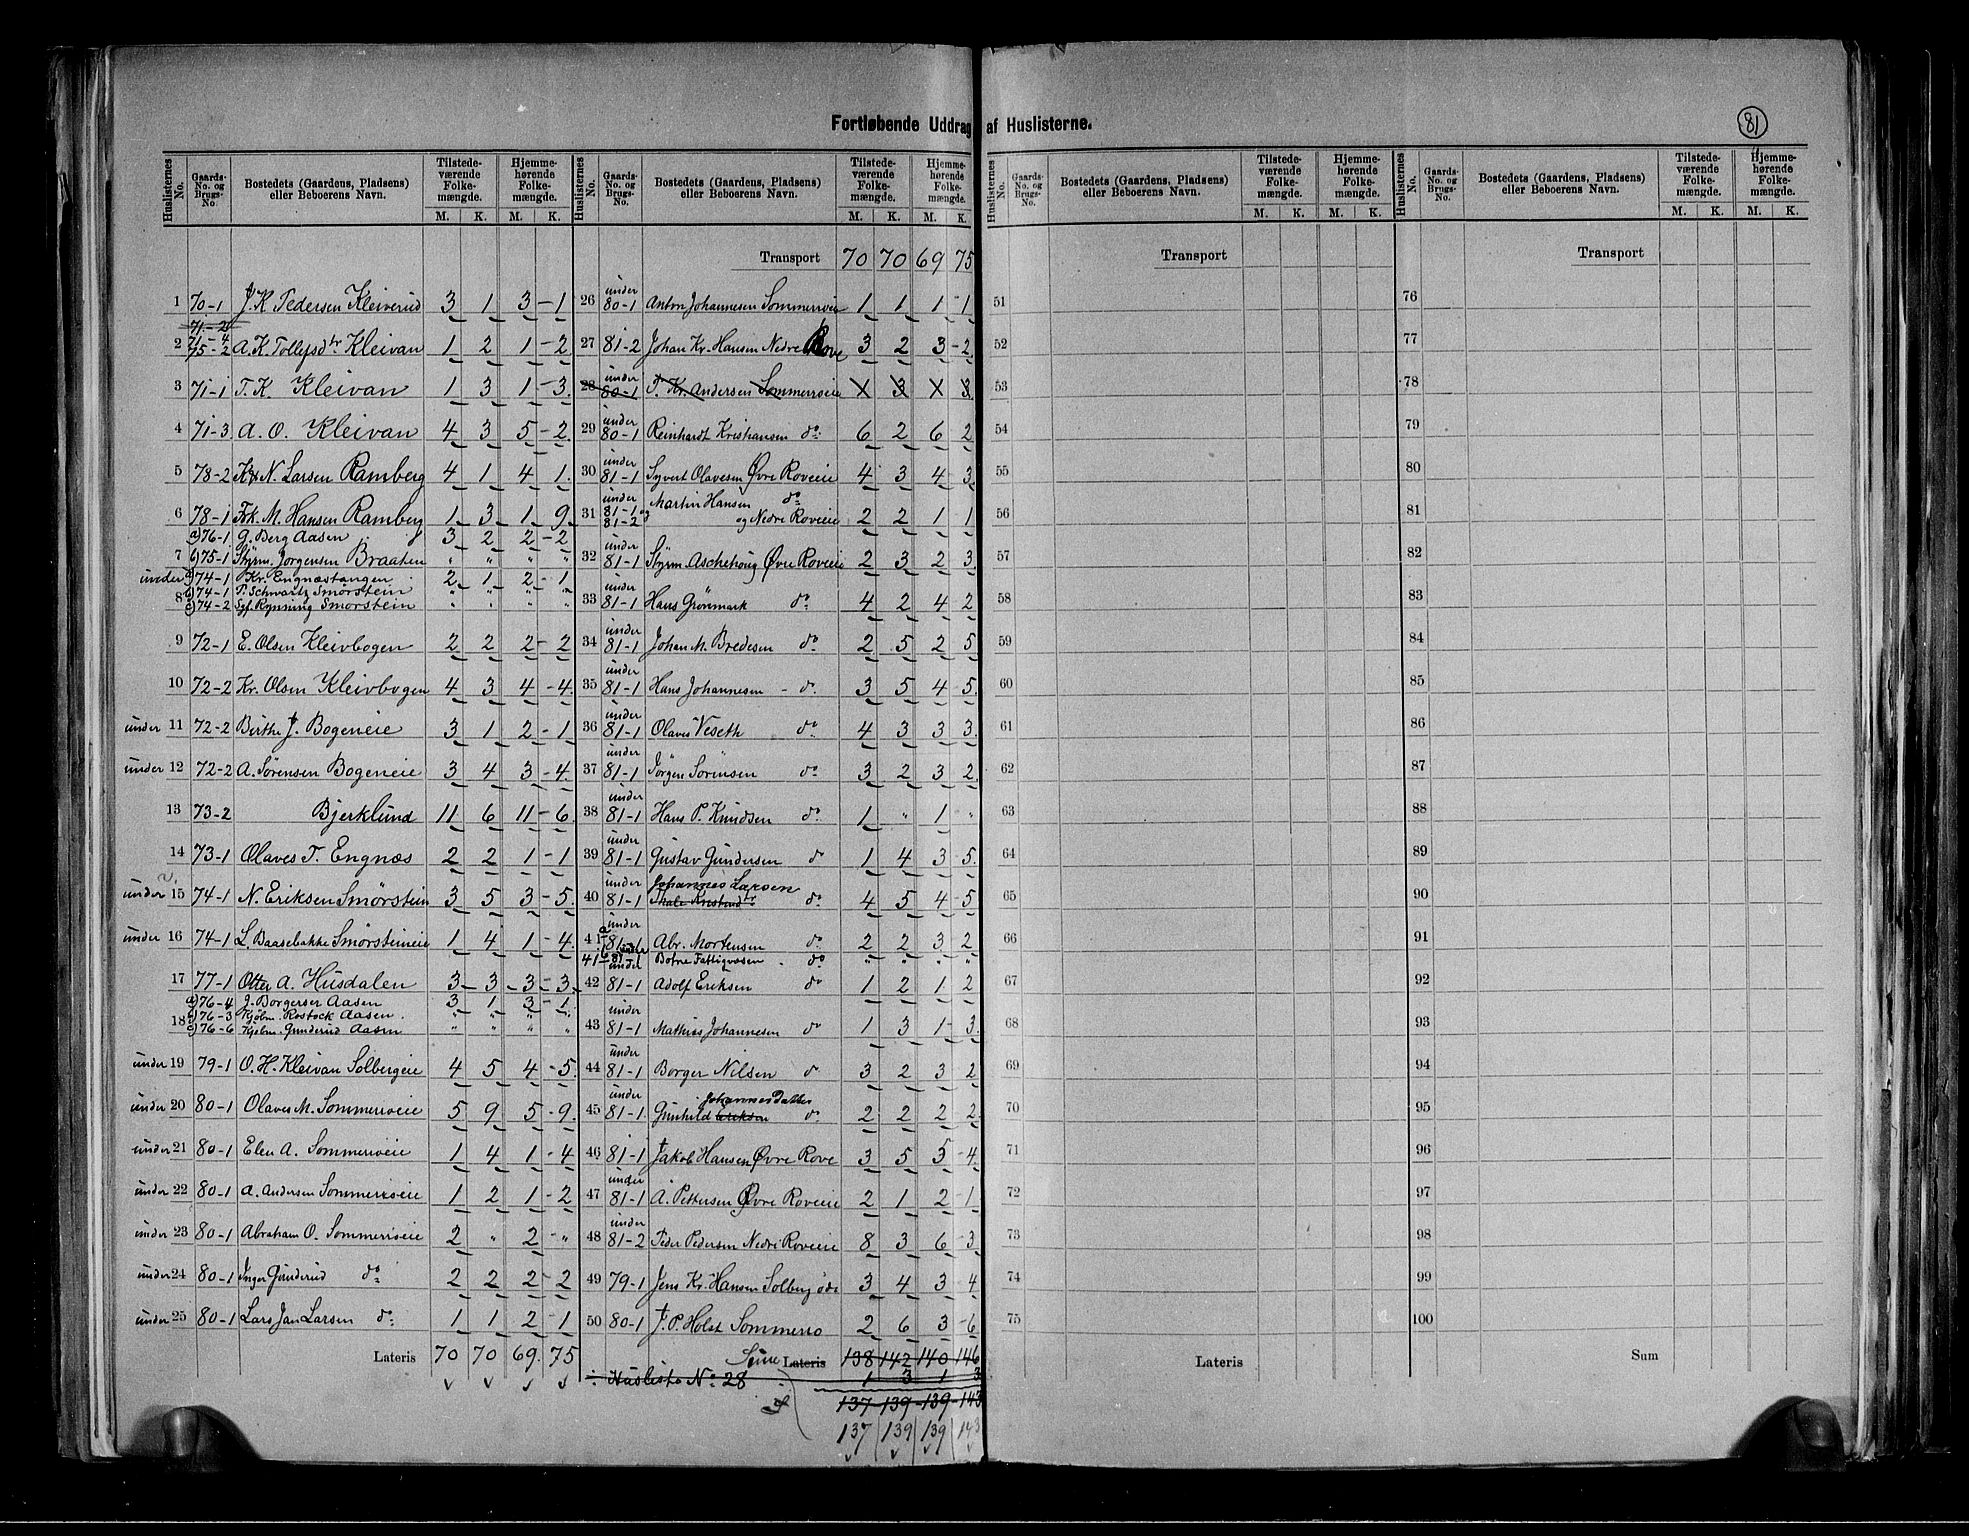 81
Fortløbende Uddrag af Huslisterne.
Huslisternes No. Gaards-No. og Brugs-No. Bostedets (Gaardens, Pladsens) eller Beboerens Navn. Tilstedeværende Folkemængde. M. K. Hjemmehørende Folkemængde. M. K.
1 70-1 J. K. Pedersen Kleiverud 3 1 3 - 1
71-2
2 71-4 75-2 A. K. Tollefsdtr Kleivan 1 2 1 - 2
3 71-1 T. K. Kleivan 1 3 1 - 3
4 71-3 A. O. Kleivan 4 3 5 - 2
5 78-2 N. Larsen Ramberg 4 1 4 1
6 78-1 Frk. M. Hansen Ramberg 1 3 1 9
a) 76-1 G. Berg Aasen 3 2 2 - 2
7 b) 75-1 Styrm. Jørgensen Braaten " " " "
under a) 74-1 Kr. Engnæstangen 2 1 2 - 1
8 b) 74-1 P. Schwartz Smørstein " " " "
c) 74-2 Sgf. Rynning Smørstein " " " "
9 72-1 E. Olsen Kleivbogen 2 2 2 - 2
10 72-2 Kr. Olsen Kleivbogen 4 3 4 - 4
under 11 72-2 Birthe J. Bogeneie 3 1 2 - 1
under 12 72-2 A. Sørensen Bogeneie 3 4 3 - 4
13 73-2 Bjerklund 11 6 11 - 6
14 73-1 Olaves T. Engnæs 2 2 1 - 1
under 15 74-1 N. Eriksen Smørstein 3 5 3 - 5
under 16 74-1 L. Baasebakke Smørsteineie 1 4 1 - 4
17 77-1 Otter A. Husdalen 3 - 3 - 3 - 3
a) 76-4 J. Borgersen Aasen 3 1 3 - 1
18 b) 76-3 Kjøbm. Rostock Aasen " " " "
c) 76-6 Kjøbm. Gunderud Aasen " " " "
under 19 79-1 O. H. Kleivan Solbergeie 4 5 4 - 5
under 20 80-1 Olaves M. Sommerroeie 5 9 5 - 9
under 21 80-1 Elen A. Sommerroeie 1 4 1 - 4
under 22 80-1 A. Andersen Sommerroeie 1 2 1 - 2
under 23 80-1 Abraham O. Sommerroeie 2 " 2 - "
under 24 80-1 Inger Gunderud do 2 2 2 - 2
under 25 80-1 Lars Jan Larsen do 1 1 2 - 1
Lateris 70 70 69 75
Huslisternes No. Gaards-No. og Brugs-No. Bostedets (Gaardens, Pladsens) eller Beboerens Navn. Tilstedeværende Folkemængde. M. K. Hjemmehørende Folkemængde. M. K.
Transport 70 70 69 75
26 under 80-1 Anton Johannesen Sommerroeie 1 1 1 - 1
27 81-2 Johan Kr. Hansen Nedre Rove 3 2 3 - 2
28 under 80-1 T. Kr. Andersen Sommerroeie X 3 X 3
29 under 80-1 Reinhardt Kristiansen do 6 2 6 2
30 under 81-1 Syvert Olavesen Øvre Roveeie 4 3 4 3
31 under 81-1 og 81-2 Martin Hansen do og Nedre Roveeie 2 2 1 1
32 under 81-1 Styrm Aschehoug Øvre Roveeie 2 3 2 3
33 under 81-1 Hans Grønmark do 4 2 4 2
34 under 81-1 Johan M. Bredesen do 2 5 2 5
35 under 81-1 Hans Johannesen - do 3 5 4 5
36 under 81-1 Olaves Veseth do 4 3 3 3
37 under 81-1 Jørgen Sørensen do 3 2 3 2
38 under 81-1 Hans P. Knudsen do 1 " 1 "
39 under 81-1 Gustav Gundersen do 1 4 3 5
40 under 81-1 Johannes Larsen do 4 5 4 5
41 a under 81-1 Abr. Mortensen do 2 2 3 2
41 b under 81-1 Botne Fattigvæsen do " " " "
42 under 81-1 Adolf Eriksen do 1 2 1 2
43 under 81-1 Mathias Johannesen do 1 3 1 - 3
44 under 81-1 Borger Nilsen do 3 2 3 2
45 under 81-1 Gunhild Eriksen Johannesdatter do 2 2 2 2
46 81-1 Jakob Hansen Øvre Rove 3 5 5 - 4
47 under 81-1 A. Pettersen Øvre Roveeie 2 1 2 - 1
48 under 81-2 Peder Pedersen Nedre Roveeie 8 3 6 - 3
49 79-1 Jens Kr. Hansen Solberg øde 3 4 3 - 4
50 80-1 J. P. Holst Sommerro 2 6 3 - 6
Lateris 138 142 140 146
÷ Husliste No. 28 1 3 1 3
137 - 139 - 139 - 143
137 139 139 143
Huslisternes No. Gaards-No. og Brugs-No. Bostedets (Gaardens, Pladsens) eller Beboerens Navn. Tilstedeværende Folkemængde. M. K. Hjemmehørende Folkemængde. M. K.
Transport
51
52
53
54
55
56
57
58
59
60
61
62
63
64
65
66
67
68
69
70
71
72
73
74
75
Lateris
Huslisternes No. Gaards-No. og Brugs-No. Bostedets (Gaardens, Pladsens) eller Beboerens Navn. Tilstedeværende Folkemængde. M. K. Hjemmehørende Folkemængde. M. K.
Transport
76
77
78
79
80
81
82
83
84
85
86
87
88
89
90
91
92
93
94
95
96
97
98
99
100
Sum